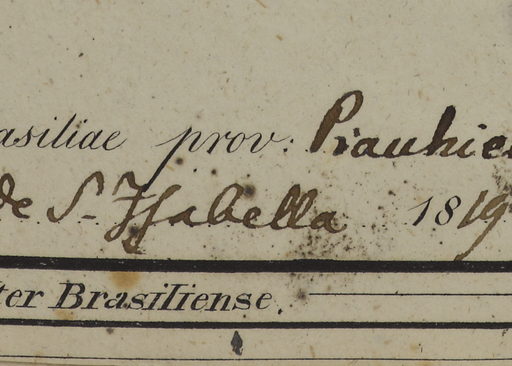 asiliae prov: Piauhie
de S. Isabella 1819
ter Brasiliense.